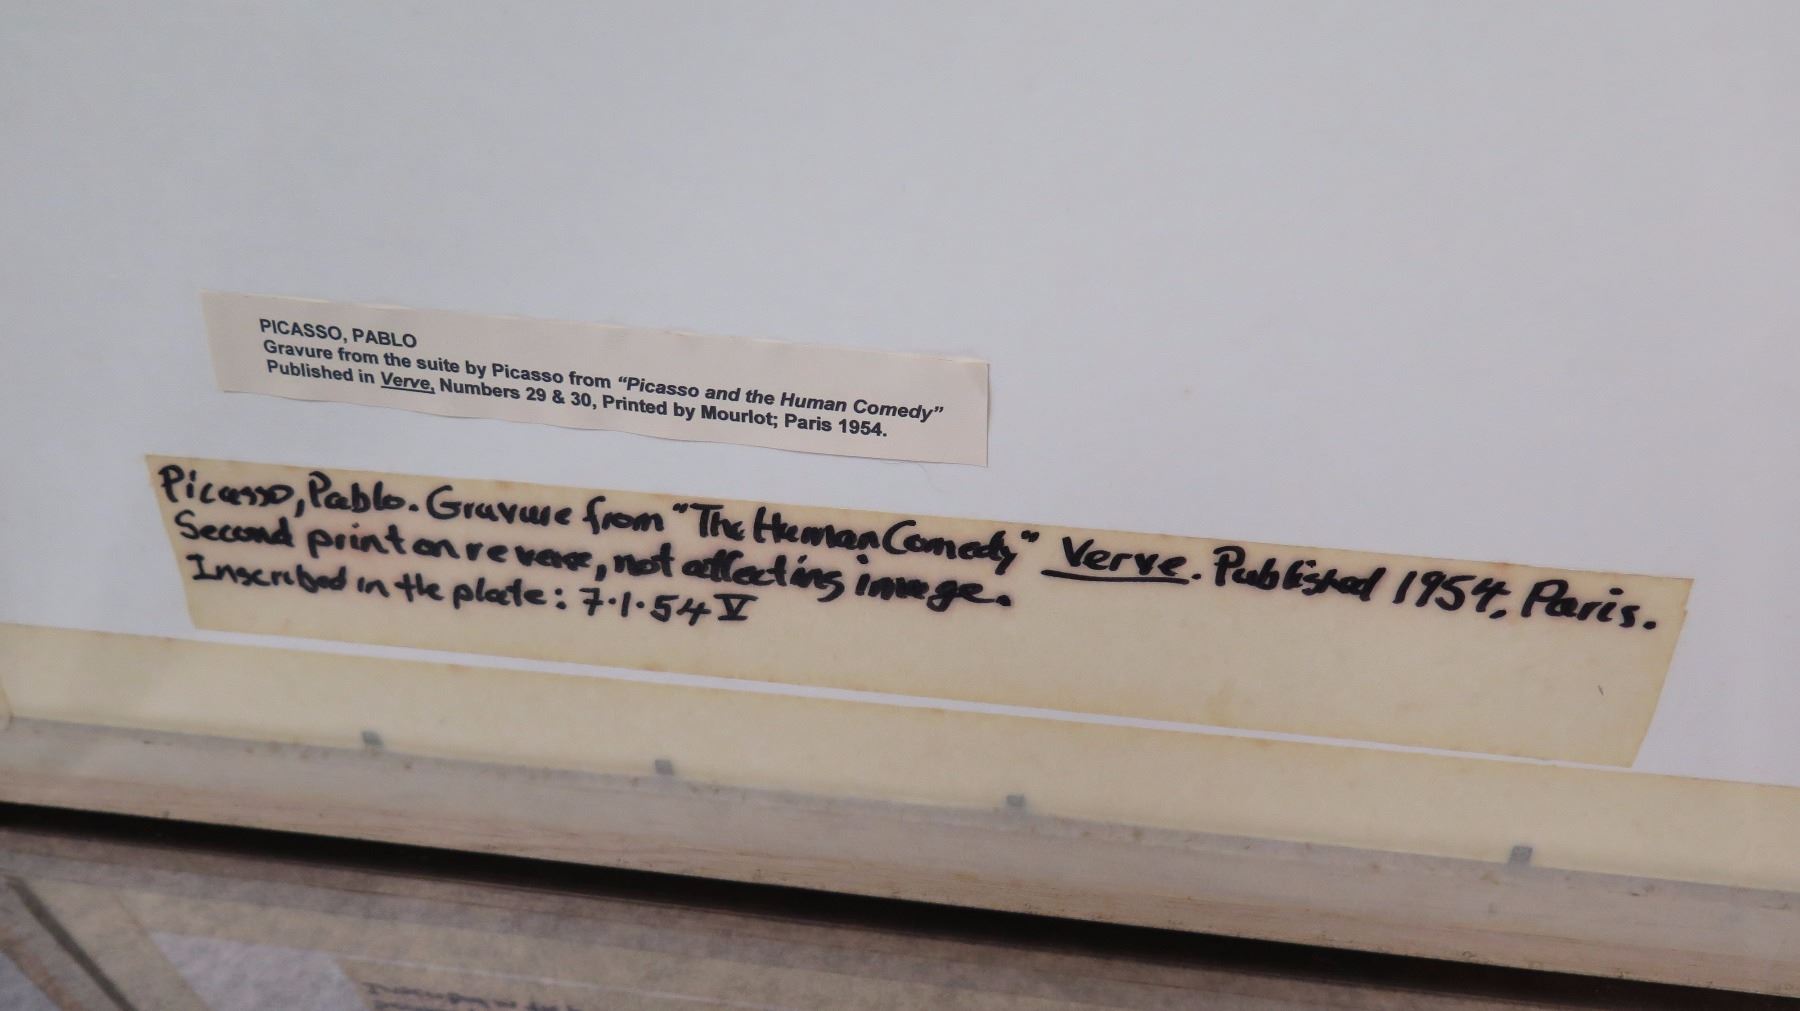 PICASSO, PABLO
Gravure from the suite by Picasso from “Picasso and the Human Comedy”
Published in Verve, Numbers 29 & 30, Printed by Mourlot; Paris 1954.
Picasso, Pablo. Gravure from "The Human Comedy" Verve. Published 1954, Paris.
Second print on reverse, not affecting image.
Inscribed in the plate: 7.1.54 V